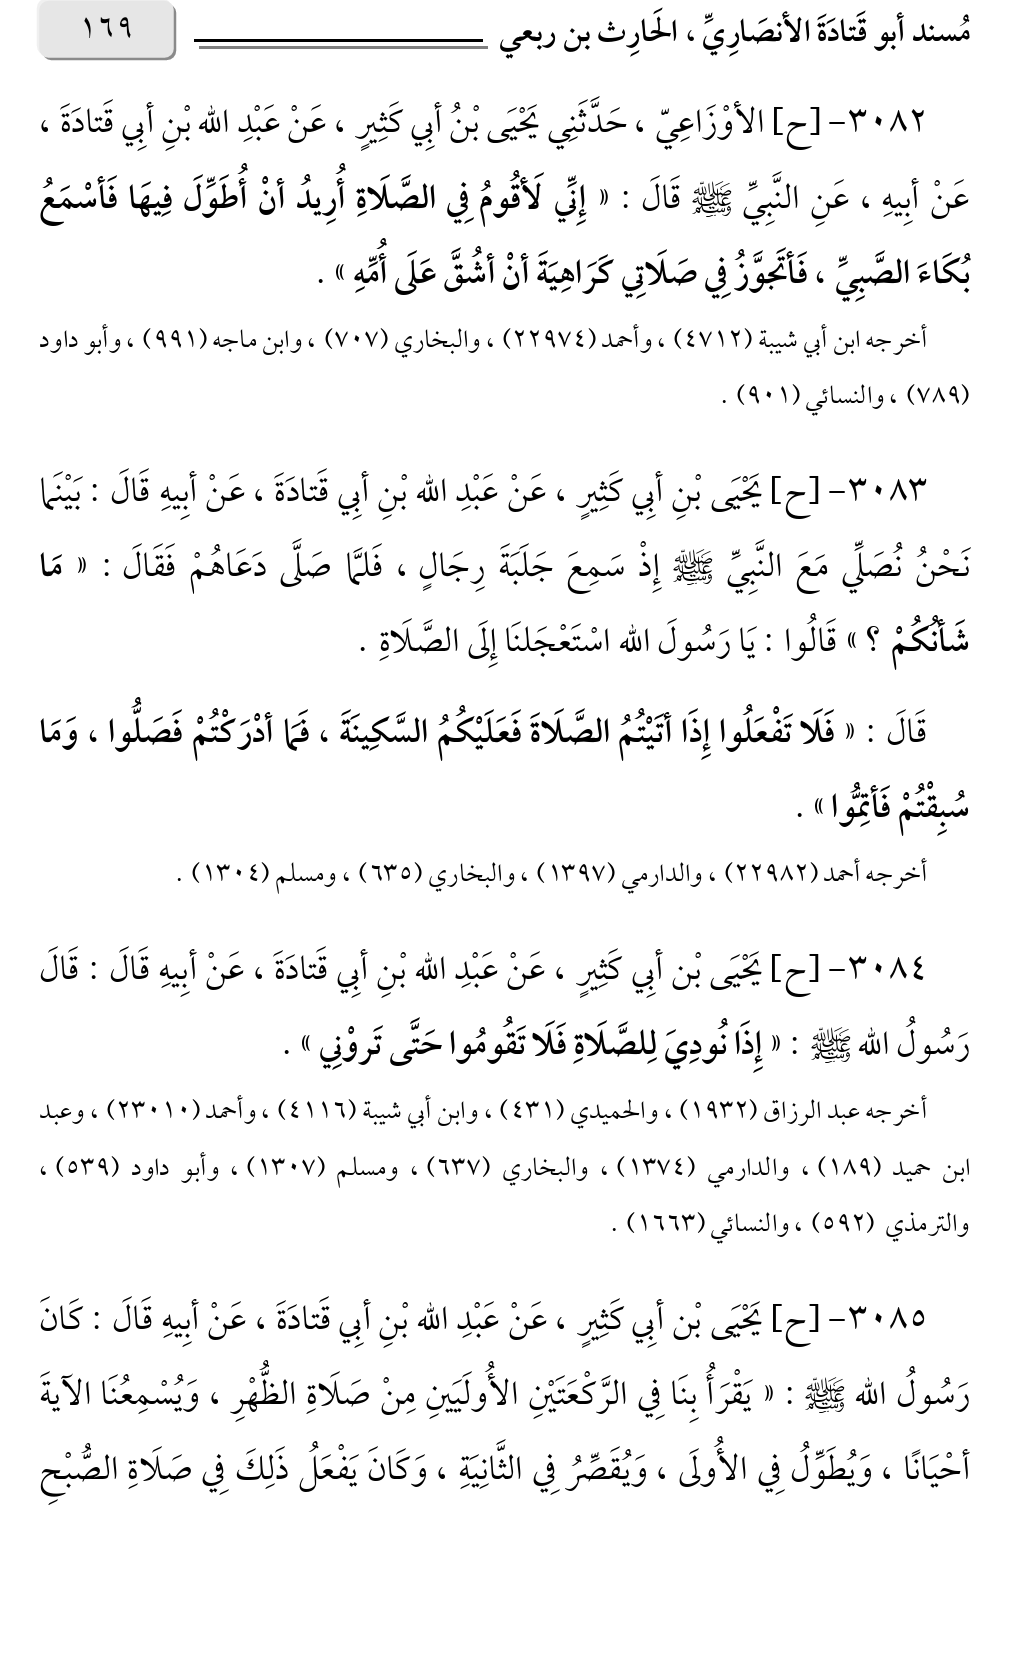 مُسند أبو قَتادَةَ الأنصَارِيِّ ، الحَارِث بن ربعي ١٦٩
٣٠٨٢– [ح] الأوْزَاعِيّ ، حَدَّثَنِي يَحْيَى بْنُ أبِي كَثِيرٍ ، عَنْ عَبْدِ الله بْنِ أبِي قَتادَةَ ،
عَنْ أبِيهِ ، عَنِ النَّبِيِّ ﷺ قَالَ : « إِنِّي لَأقُومُ فِي الصَّلَاةِ أُرِيدُ أنْ أُطَوِّلَ فِيهَا فَأسْمَعُ
بُكَاءَ الصَّبِيِّ ، فَأتَجوَّزُ فِي صَلَاتِي كَرَاهِيَةَ أنْ أشُقَّ عَلَى أُمِّهِ » .
أخرجه ابن أبي شيبة (٤٧١٢) ، وأحمد (٢٢٩٧٤) ، والبخاري (٧٠٧) ، وابن ماجه (٩٩١) ، وأبو داود
(٧٨٩) ، والنسائي (٩٠١) .
٣٠٨٣– [ح] يَحْيَى بْنِ أبِي كَثِيرٍ ، عَنْ عَبْدِ الله بْنِ أبِي قَتادَةَ ، عَنْ أبِيهِ قَالَ : بَيْنَما
نَحْنُ نُصَلِّي مَعَ النَّبِيِّ ﷺ إِذْ سَمِعَ جَلَبَةَ رِجَالٍ ، فَلمَّا صَلَّى دَعَاهُمْ فَقَالَ : « مَا
شَأنُكُمْ ؟ » قَالُوا : يَا رَسُولَ الله اسْتَعْجَلنَا إِلَى الصَّلَاةِ .
قَالَ : « فَلَا تَفْعَلُوا إِذَا أتَيْتُمُ الصَّلَاةَ فَعَلَيْكُمُ السَّكِينَةَ ، فَمَا أدْرَكْتُمْ فَصَلُّوا ، وَمَا
سُبِقْتُمْ فَأتِمُّوا » .
أخرجه أحمد (٢٢٩٨٢) ، والدارمي (١٣٩٧) ، والبخاري (٦٣٥) ، ومسلم (١٣٠٤) .
٣٠٨٤– [ح] يَحْيَى بْن أبِي كَثِيرٍ ، عَنْ عَبْدِ الله بْنِ أبِي قَتادَةَ ، عَنْ أبِيهِ قَالَ : قَالَ
رَسُولُ الله ﷺ : « إِذَا نُودِيَ لِلصَّلَاةِ فَلَا تَقُومُوا حَتَّى تَروْنِي » .
أخرجه عبد الرزاق (١٩٣٢) ، والحميدي (٤٣١) ، وابن أبي شيبة (٤١١٦) ، وأحمد (٢٣٠١٠) ، وعبد
ابن حميد (١٨٩) ، والدارمي (١٣٧٤) ، والبخاري (٦٣٧) ، ومسلم (١٣٠٧) ، وأبو داود (٥٣٩) ،
والترمذي (٥٩٢) ، والنسائي (١٦٦٣) .
٣٠٨٥– [ح] يَحْيَى بْن أبِي كَثِيرٍ ، عَنْ عَبْدِ الله بْنِ أبِي قَتادَةَ ، عَنْ أبِيهِ قَالَ : كَانَ
رَسُولُ الله ﷺ : « يَقْرَأُ بِنَا فِي الرَّكْعَتَيْنِ الأُولَيَينِ مِنْ صَلَاةِ الظُّهْرِ ، وَيُسْمِعُنَا الآيةَ
أحْيَانًا ، وَيُطَوِّلُ فِي الأُولَى ، وَيُقَصِّرُ فِي الثَّانِيَةِ ، وَكَانَ يَفْعَلُ ذَلِكَ فِي صَلَاةِ الصُّبْحِ